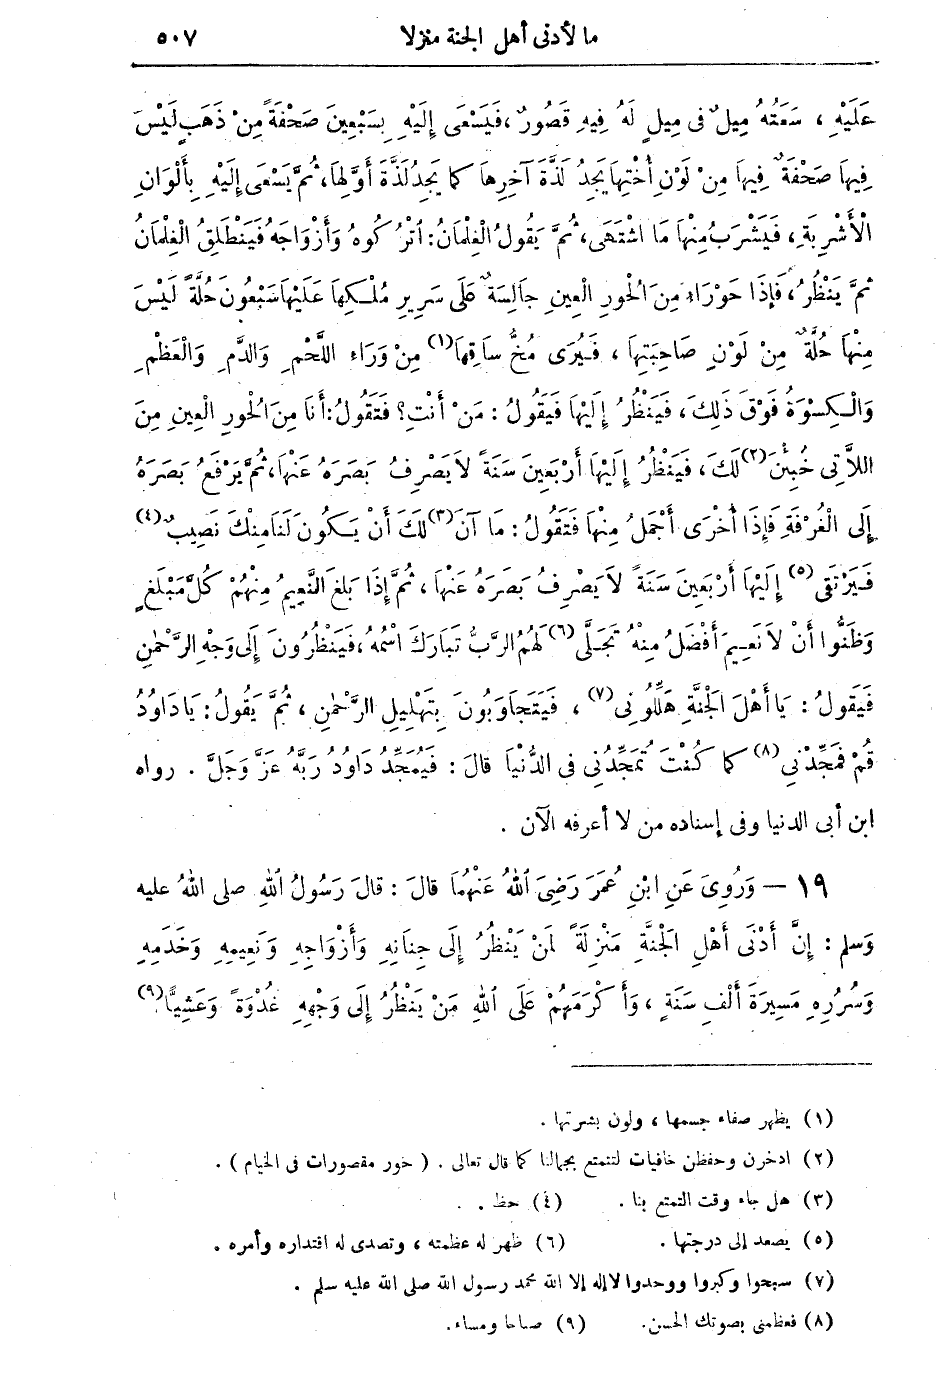 ما لأدنى أهل الجنة منزلا ٥٠٧
عَلَيْهِ ، سَعَتُهُ مِيلٌ فى مِيلٍ لَهُ فِيهِ قُصُورٌ ، فَيَسْعَى إِلَيْهِ بِسَبْعِينَ صَحْفَةً مِنْ ذَهَبٍ لَيْسَ
فِيهَا صَحْفَةٌ فِيهَا مِنْ لَوْنِ أُخْتِهَا يَجِدُ لَذَّةَ آخِرِهَا كما يَجِدُ لَذَّةَ أَوَّلِهَا، ثُمَّ يَسْعَى إِلَيْهِ بِأَلْوَانِ
الْأَشْرِبَةِ ، فَيَشْرَبُ مِنْهَا مَا اشْتَهَى، ثُمَّ يَقُولُ الْغِلْمَانُ : اُتْرُكُوهُ وَأَزْوَاجَهُ فَيَنْطَلِقُ الْغِلْمَانُ
ثُمَّ يَنْظُرُ، فَإِذَا حَوْرَاءُ مِنَ الْحُورِ الْعِينِ جَالِسَةٌ عَلَى سَرِيرِ مُلْكِهَا عَلَيْهَا سَبْعُونَ حُلَّةً لَيْسَ
مِنْهَا حُلَّةٌ مِنْ لَوْنِ صَاحِبَتِهَا ، فَيُرَى مُخُّ سَاقِهَا(١) مِنْ وَرَاءِ اللَّحْمِ وَالدَّمِ وَالْعَظْمِ
وَالْكِسْوَةُ فَوْقَ ذَلِكَ ، فَيَنْظُرُ إِلَيْهَا فَيَقُولُ : مَنْ أَنْتِ؟ فَتَقُولُ: أَنَا مِنَ الْحُورِ الْعِينِ مِنَ
اللاَّتِى خُبِئْنَ(٢) لَكَ ، فَيَنْظُرُ إِلَيْهَا أَرْبَعِينَ سَنَةً لاَ يَصْرِفُ بَصَرَهُ عَنْهَا، ثُمَّ يَرْفَعُ بَصَرَهُ
إِلَى الْغُرْفَةِ فَإِذَا أُخْرَى أَجْمَلُ مِنْهَا فَتَقُولُ : مَا آنَ(٣) لَكَ أَنْ يَكُونَ لَنَا مِنْكَ نَصِيبٌ(٤)
فَيَرْتَقِى(٥) إِلَيْهَا أَرْبَعِينَ سَنَةً لاَ يَصْرِفُ بَصَرَهُ عَنْهَا ، ثُمَّ إِذَا بَلَغَ النَّعِيمُ مِنْهُمْ كُلَّ مَبْلَغٍ
وَظَنُّوا أَنْ لاَ نَعِيمَ أَفْضَلُ مِنْهُ تَجَلَّى(٦) لَهُمُ الرَّبُّ تَبَارَكَ اسْمُهُ ، فَيَنْظُرُونَ إِلَى وَجْهِ الرَّحْمٰنِ
فَيَقُولُ : يَا أَهْلَ الْجَنَّةِ هَلِّلُونِى(٧) ، فَيَتَجَاوَبُونَ بِتَهْلِيلِ الرَّحْمٰنِ ، ثُمَّ يَقُولُ : يَا دَاوُدُ
قُمْ فَمَجِّدْنِى(٨) كما كُنْتَ تُمَجِّدُنِى فى الدُّنْيَا قالَ : فَيُمَجِّدُ دَاوُدُ رَبَّهُ عَزَّ وَجَلَّ . رواه
ابن أبى الدنيا وفى إسناده من لا أعرفه الآن .
١٩ — وَرُوِىَ عَنِ ابْنِ عُمَرَ رَضِىَ اللهُ عَنْهُمَا قالَ : قالَ رَسُولُ اللهِ صلى اللهُ عليه
وَسلم : إِنَّ أَدْنَى أَهْلِ الْجَنَّةِ مَنْزِلَةً لَمَنْ يَنْظُرُ إِلَى جِنَانِهِ وَأَزْوَاجِهِ وَنَعِيمِهِ وَخَدَمِهِ
وَسُرُرِهِ مَسِيرَةَ أَلْفِ سَنَةٍ ، وَأَكْرَمَهُمْ عَلَى اللهِ مَنْ يَنْظُرُ إِلَى وَجْهِهِ غُدْوَةً وَعَشِيًّا(٩)
(١) يظهر صفاء جسمها ، ولون بشرتها .
(٢) ادخرن وحفظن خافيات لتتمتع بجمالنا كما قال تعالى . ( حور مقصورات فى الخيام ) .
(٣) هل جاء وقت التمتع بنا . (٤) حظ .
(٥) يصعد إلى درجتها . (٦) ظهر له عظمته ، وتصدى له اقتداره وأمره .
(٧) سبحوا وكبروا ووحدوا لا إله إلا الله محمد رسول الله صلى الله عليه سلم .
(٨) فعظمنى بصوتك الحسن. (٩) صباحا ومساء.